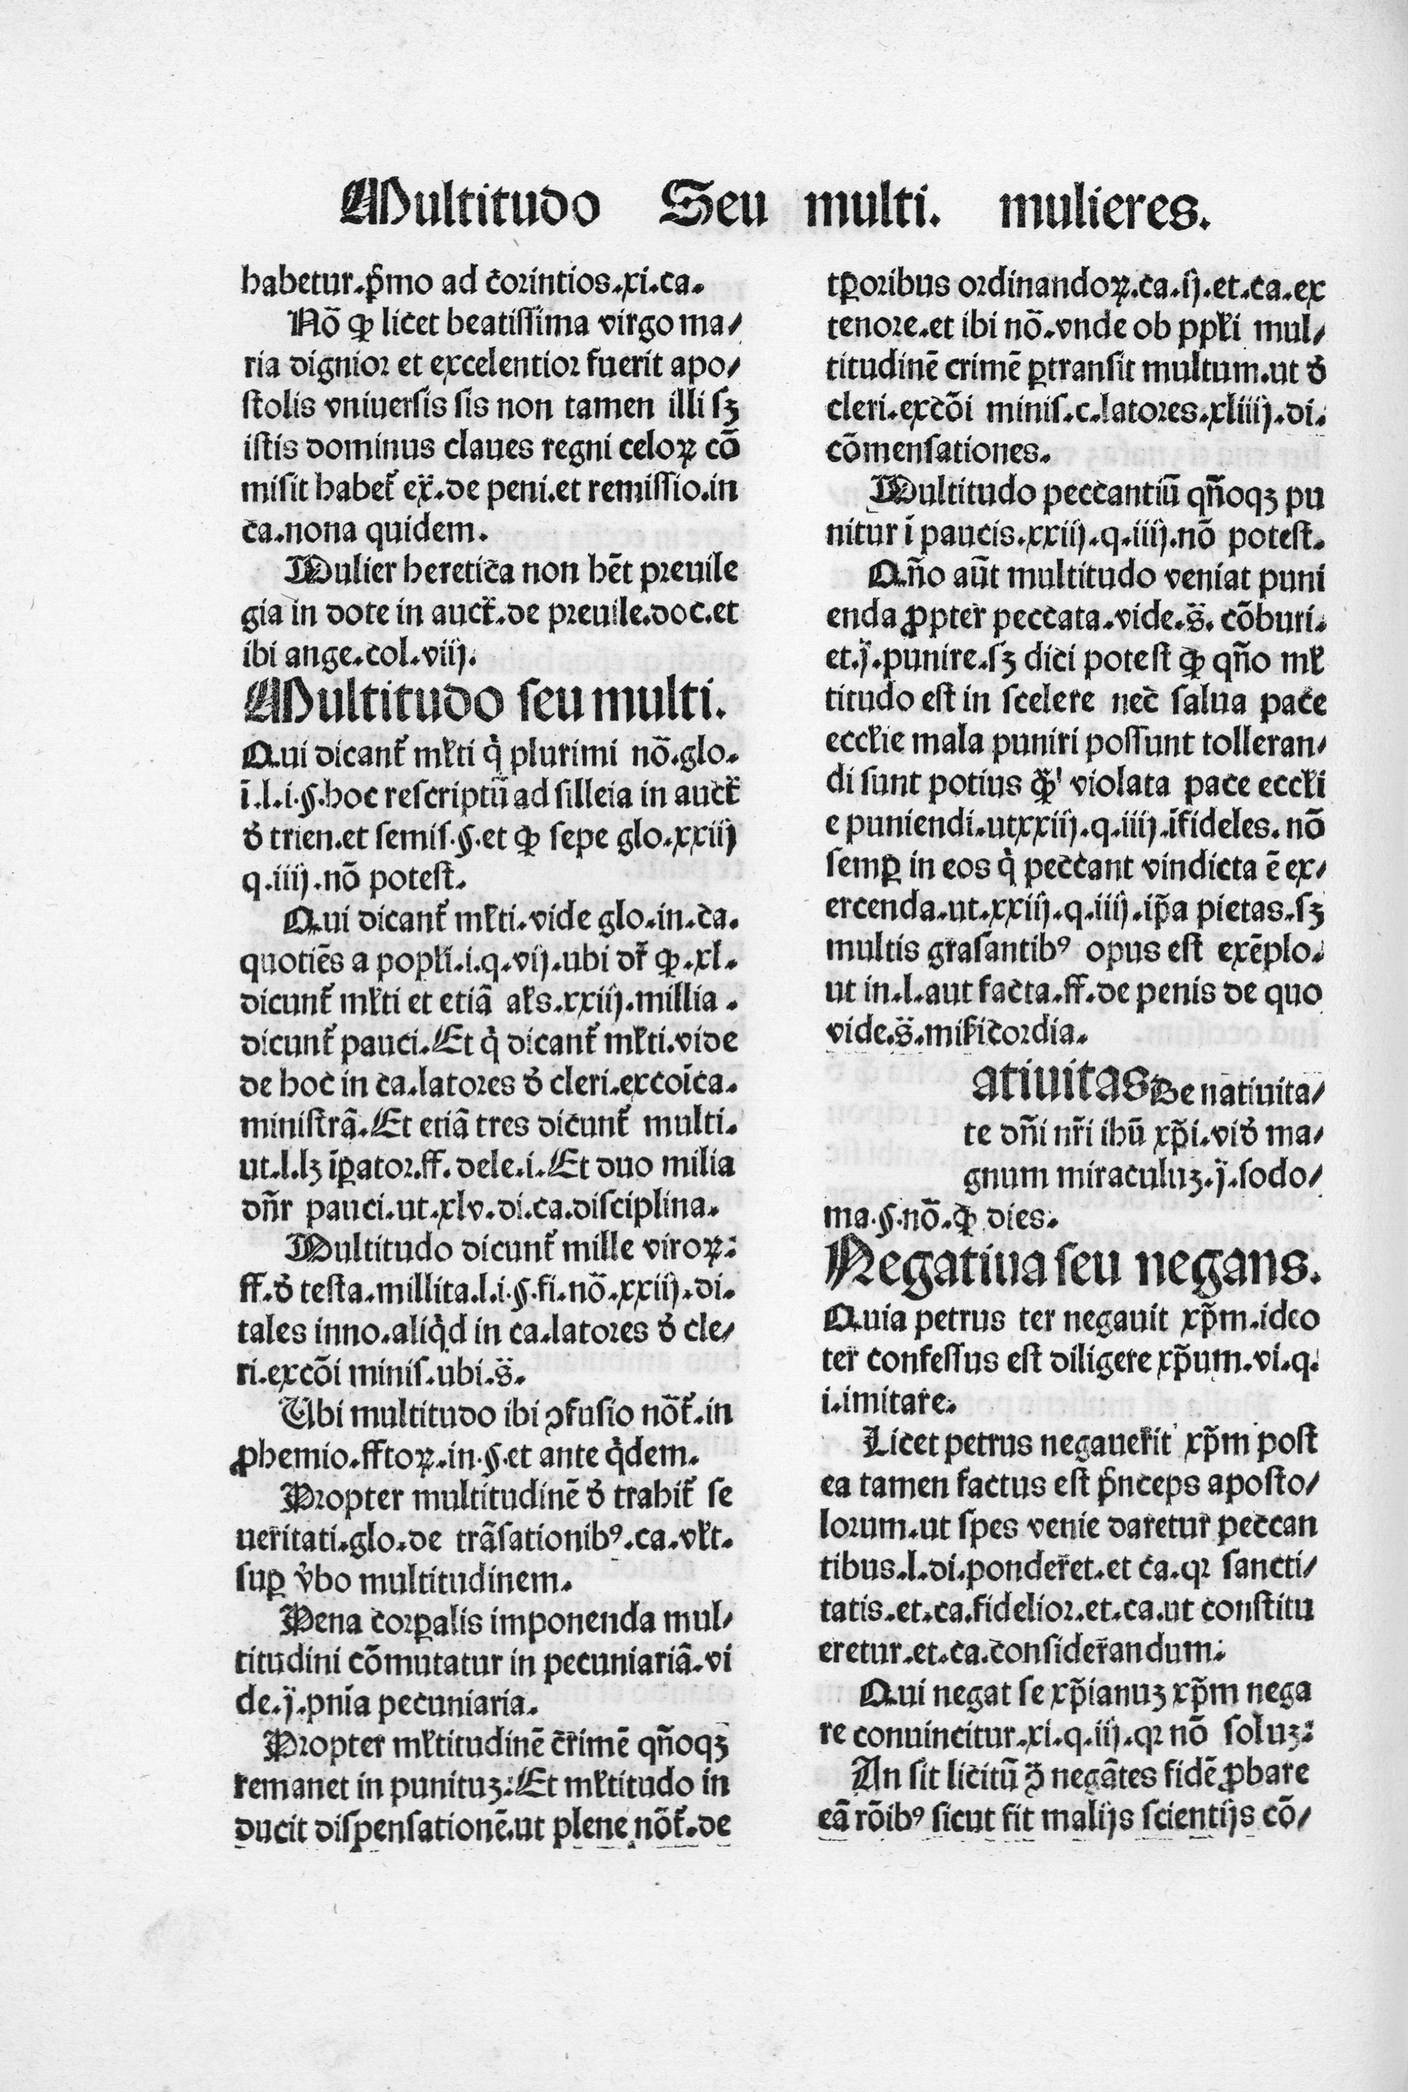 Multitudo Seu multi. mulieres.
habetur.p̄mo ad corintios.xi.ca.
Nō ꝙ licet beatissima virgo ma/
ria dignior et excelentior fuerit apo/
stolis vniuersis sis non tamen illi sꝫ
istis dominus claues regni celoꝝ cō
misit habet᷑ ex̄.de peni.et remissio.in
ca.nona quidem.
Mulier heretica non hēt preuile
gia in dote in auct̄.de preuile.doc.et
ibi ange.col.viij.
Multitudo seu multi.
Qui dicant᷑ mĺti q̇ plurimi nō.glo.
ī.l.i.§.hoc rescriptū ad silleia in auct̄
ꝺ̄ trien.et semis.§.et ꝙ sepe glo.xxiij
q.iiij.nō potest.
Qui dicant᷑ mĺti.vide glo.in.ca.
quotiēs a popĺi.i.q.vij.ubi dr̄ ꝙ.xl.
dicunt᷑ mĺti et etiā aĺs.xxiij.millia.
dicunt᷑ pauci.Et q̇ dicant᷑ mĺti.vide
de hoc in ca.latores ꝺ̄ cleri.excoīca.
ministrā.Et etiā tres dicunt᷑ multi.
ut.l.lꝫ īꝑator.ff.dele.i.Et duo milia
dn̄r pauci.ut.xlv.di.ca.disciplina.
Multitudo dicunt᷑ mille viroꝝ:
ff.ꝺ̄ testa.millita.l.i.§.fi.nō.xxiij.di.
tales inno.aliq̇d in ca.latores ꝺ̄ cle/
ri.excōi minis.ubi.s̄.
Ubi multitudo ibi ꝯfusio nōt᷑.in
ꝓhemio.fftoꝝ.in.§.et ante q̇dem.
Propter multitudinē ꝺ̄ trahit᷑ se
ueritati.glo.de trāsationibꝰ.ca.vĺt.
suꝑ v̄bo multitudinem.
Pena corꝑalis imponenda mul/
titudini cōmutatur in pecuniariā.vi
de.j̄.pnīa pecuniaria.
Propter mĺtitudinē c̄rimē qn̄oqꝫ
remanet in punituꝫ:Et mĺtitudo in
ducit dispensationē.ut plene nōt᷑.de
tꝑoribus ordinandoꝝ.ca.ij.et.ca.ex
tenore.et ibi nō.vnde ob ppĺi mul/
titudinē crimē ꝑtransit multum.ut ꝺ̄
cleri.excōi minis.c.latores.xliiij.di.
cōmensationes.
Multitudo peccantiū qn̄oqꝫ pu
nitur ī paucis.xxiij.q.iiij.nō potest.
Qn̄o aūt multitudo veniat puni
enda ꝓpter peccata.vide.s̄.cōburi.
et.j̄.punire.sꝫ dici potest ꝙ qn̄o mĺ
titudo est in scelere nec salua pace
eccĺie mala puniri possunt tolleran/
di sunt potius ꝙ̄ violata pace eccĺi
e puniendi.utxxiij.q.iiij.īfideles.nō
semꝑ in eos q̇ peccant vindicta ē ex/
ercenda.ut.xxiij.q.iiij.ip̄a pietas.sꝫ
multis grasantibꝰ opus est exēplo.
ut in.l.aut facta.ff.de penis de quo
vide.s̄.miſicordia.
ativitas De nativita/
te dn̄i nr̄i ihū xp̄i.viꝺ̄ ma/
gnum miraculuꝫ.j̄.sodo/
ma.§.nō.ꝙ dies.
Negativa seu negans.
Quia petrus ter negauit xp̄m.ideo
ter confessus est diligere xp̄um.vi.q.
i.imitare.
Licet petrus negauerit xp̄m post
ea tamen factus est p̄nceps aposto/
lorum.ut spes venie daretur peccan
tibus.l.di.ponderet.et ca.qr sancti/
tatis.et.ca.fidelior.et.ca.ut constitu
eretur.et.ca.considerandum:
Qui negat se xp̄ianuꝫ xp̄m nega
re conuincitur.xi.q.iij.qr nō soluꝫ:
An sit licitū ꝯ̄ negātes fidē ꝓbare
eā rōibꝰ sicut fit malijs scientijs cō/